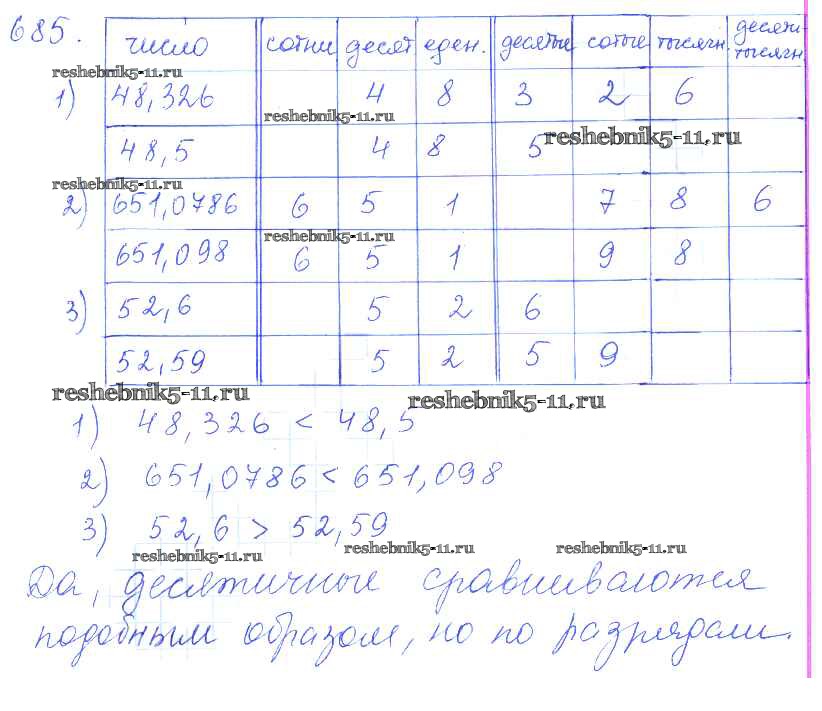 685.
число сотни десят еден. десятые сотые тысячн. десяти тысячн.
reshebnik5-11.ru
1) 48,326 4 8 3 2 6
reshebnik5-11.ru
48,5 4 8 5
reshebnik5-11.ru
reshebnik5-11.ru
2) 651,0786 6 5 1 7 8 6
reshebnik5-11.ru
651,098 6 5 1 9 8
3) 52,6 5 2 6
52,59 5 2 5 9
reshebnik5-11.ru reshebnik5-11.ru
1) 48,326 < 48,5
2) 651,0786 < 651,098
3) 52,6 > 52,59
reshebnik5-11.ru reshebnik5-11.ru reshebnik5-11.ru
Да, десятичные сравниваются
подобным образом, но по разрядам.